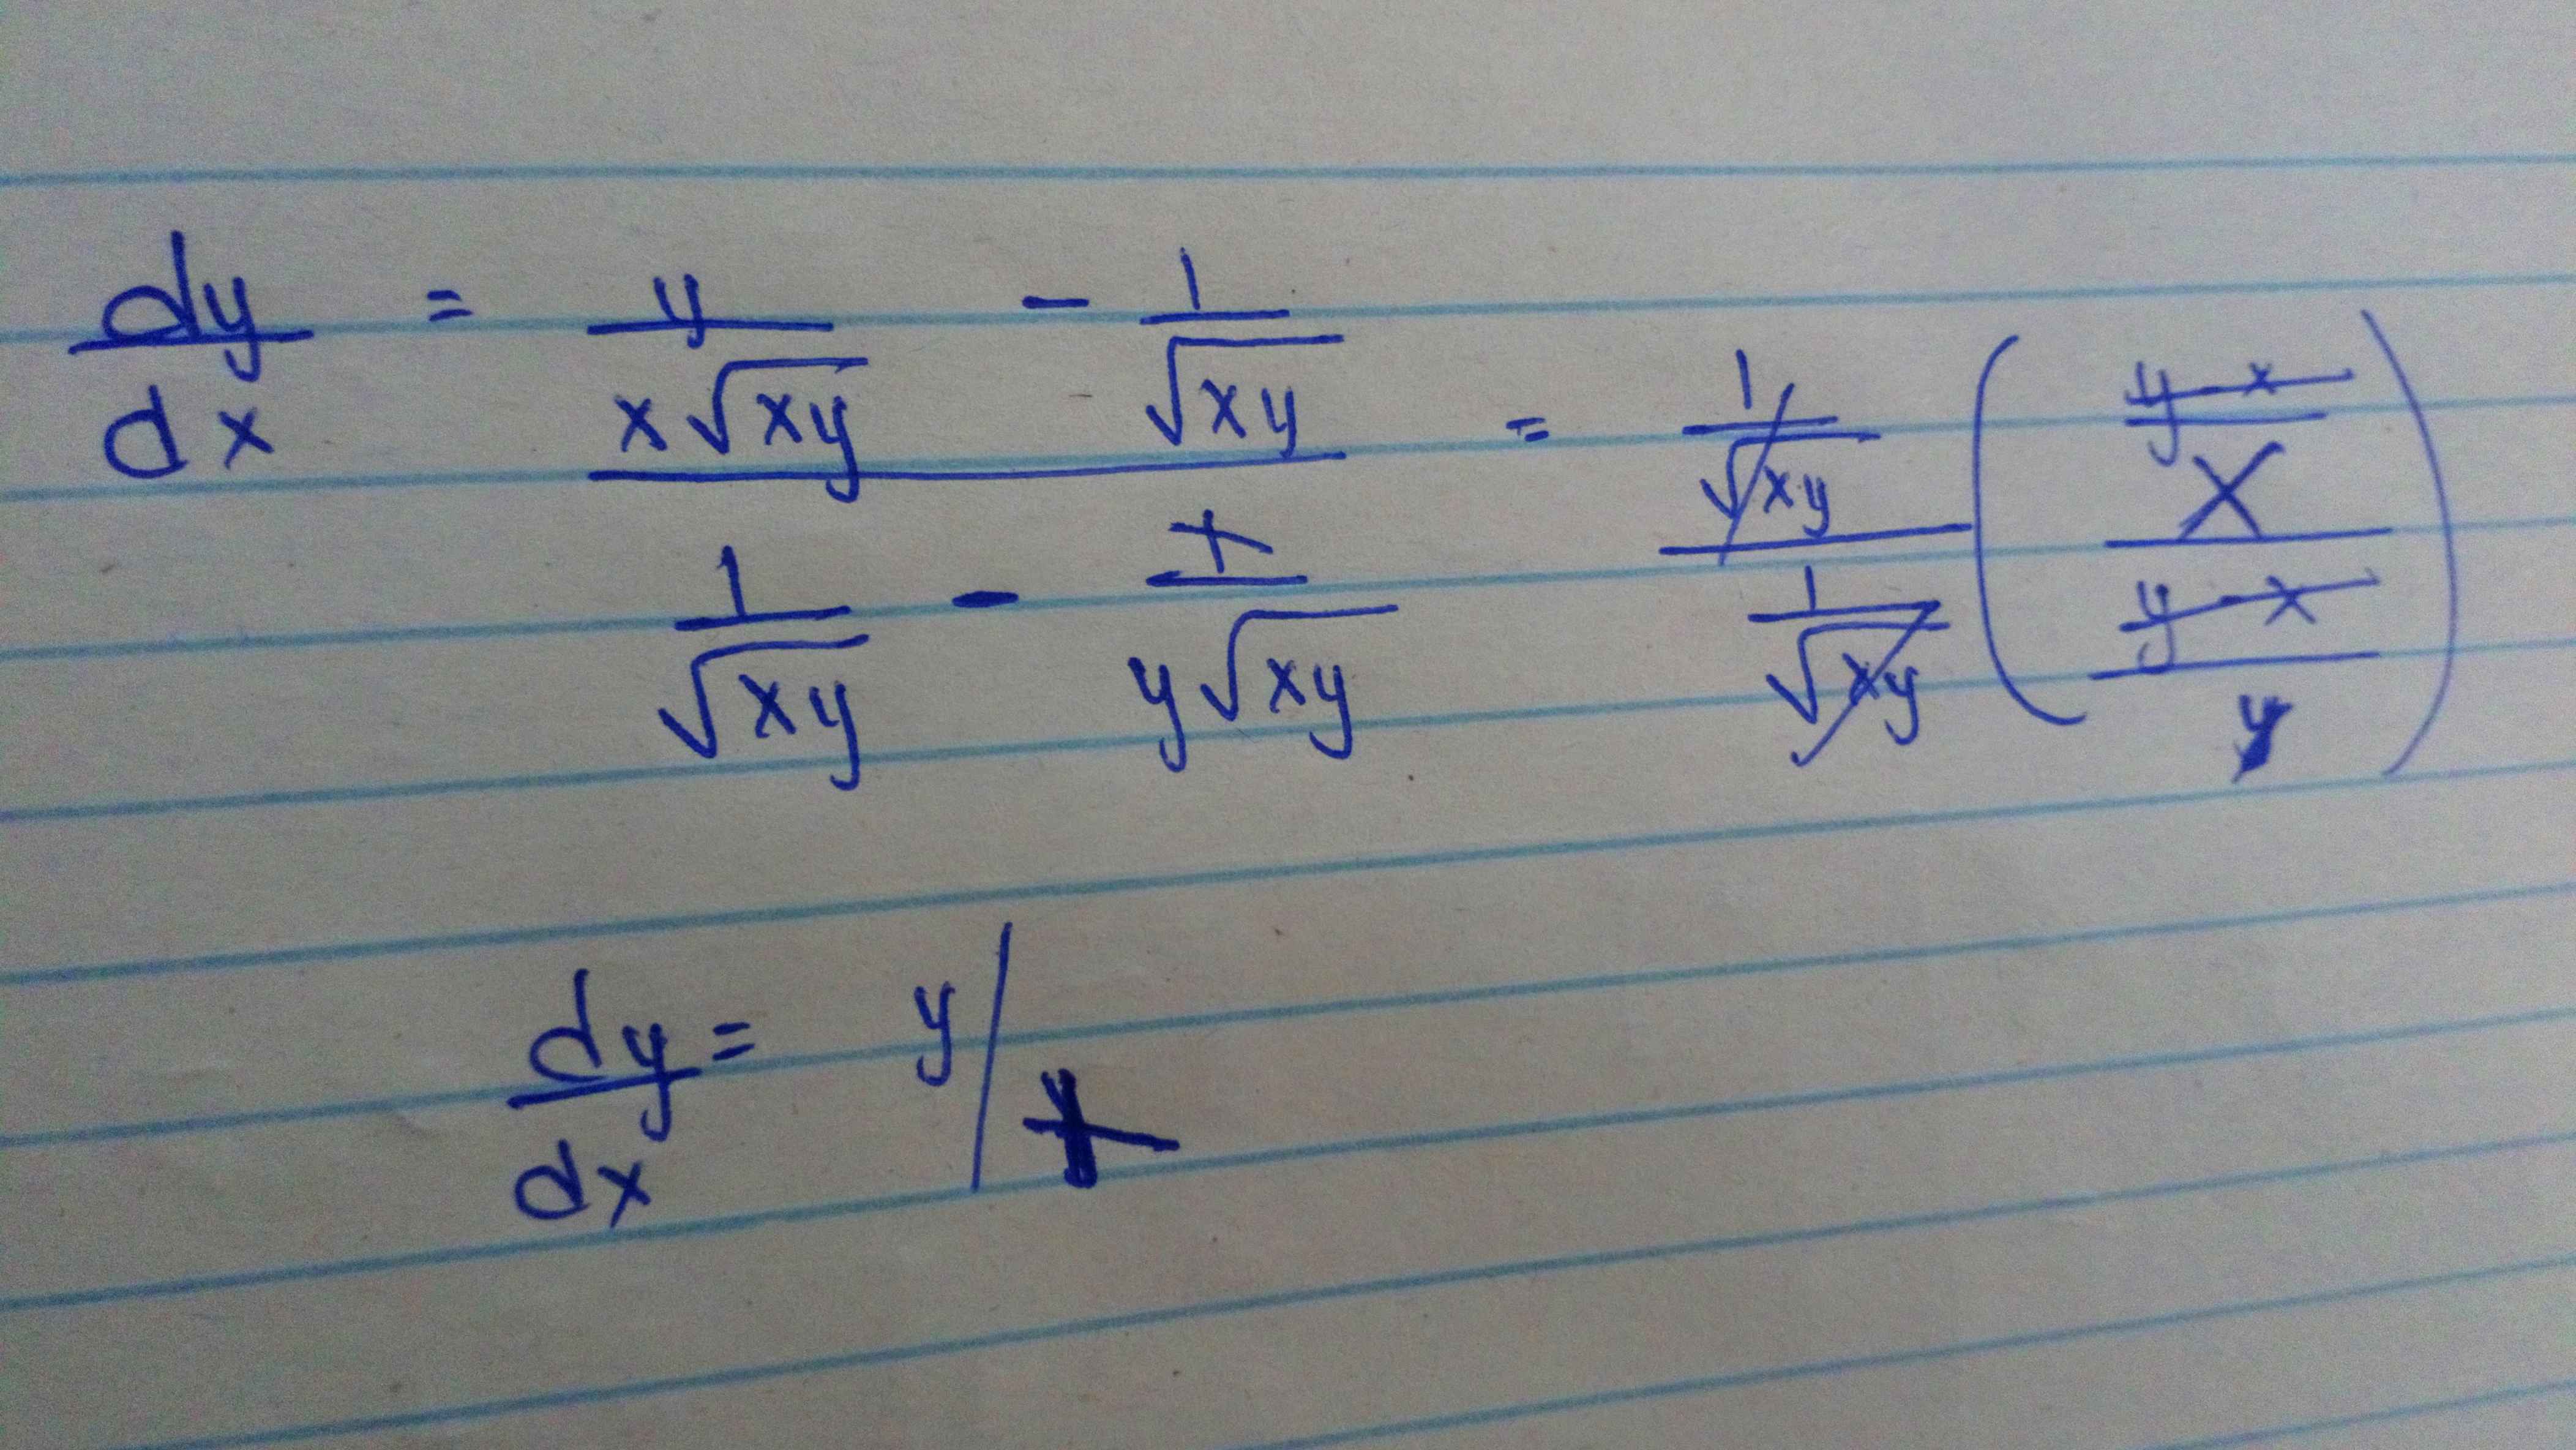 dy/dx = (y/(x√(xy)) - 1/√(xy)) / (1/√(xy) - x/(y√(xy))) = (1/√(xy)) / (1/√(xy)) (((y - x)/x) / ((y - x)/y))
dy/dx = y/x